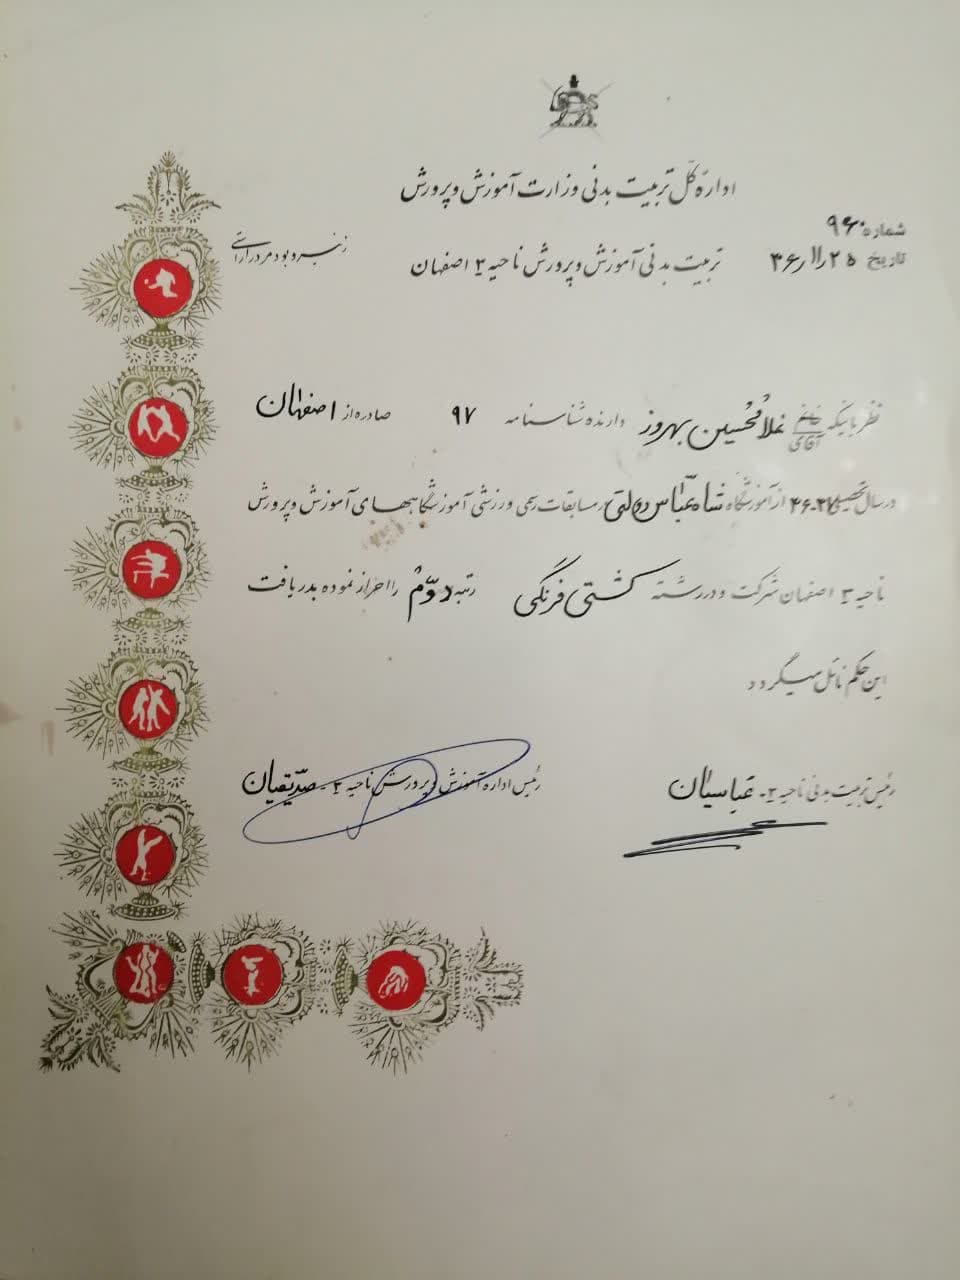 ادارهٔ کل تربیت بدنی وزارت آموزش و پرورش
شماره ۹۶۰
تربیت بدنی آموزش و پرورش ناحیه ۲ اصفهان
تاریخ ۴۶٫۱۱٫۲۵
ز نیرو بود مرد را راستی
نظر باینکه خانم آقای غلامحسین بهروز دارنده شناسنامه ۹۷ صادره از اصفهان
در سال تحصیلی ۴۷-۴۶ از آموزشگاه شاه عباس دولتی در مسابقات رسمی ورزشی آموزشگاههای آموزش و پرورش
ناحیه ۲ اصفهان شرکت و در رشته کشتی فرنگی رتبه دوّم را احراز نموده بدریافت
این حکم نائل میگردد
رئیس تربیت بدنی ناحیه ۲- عباسیان
رئیس اداره آموزش و پرورش ناحیه ۲- صدّیقیان